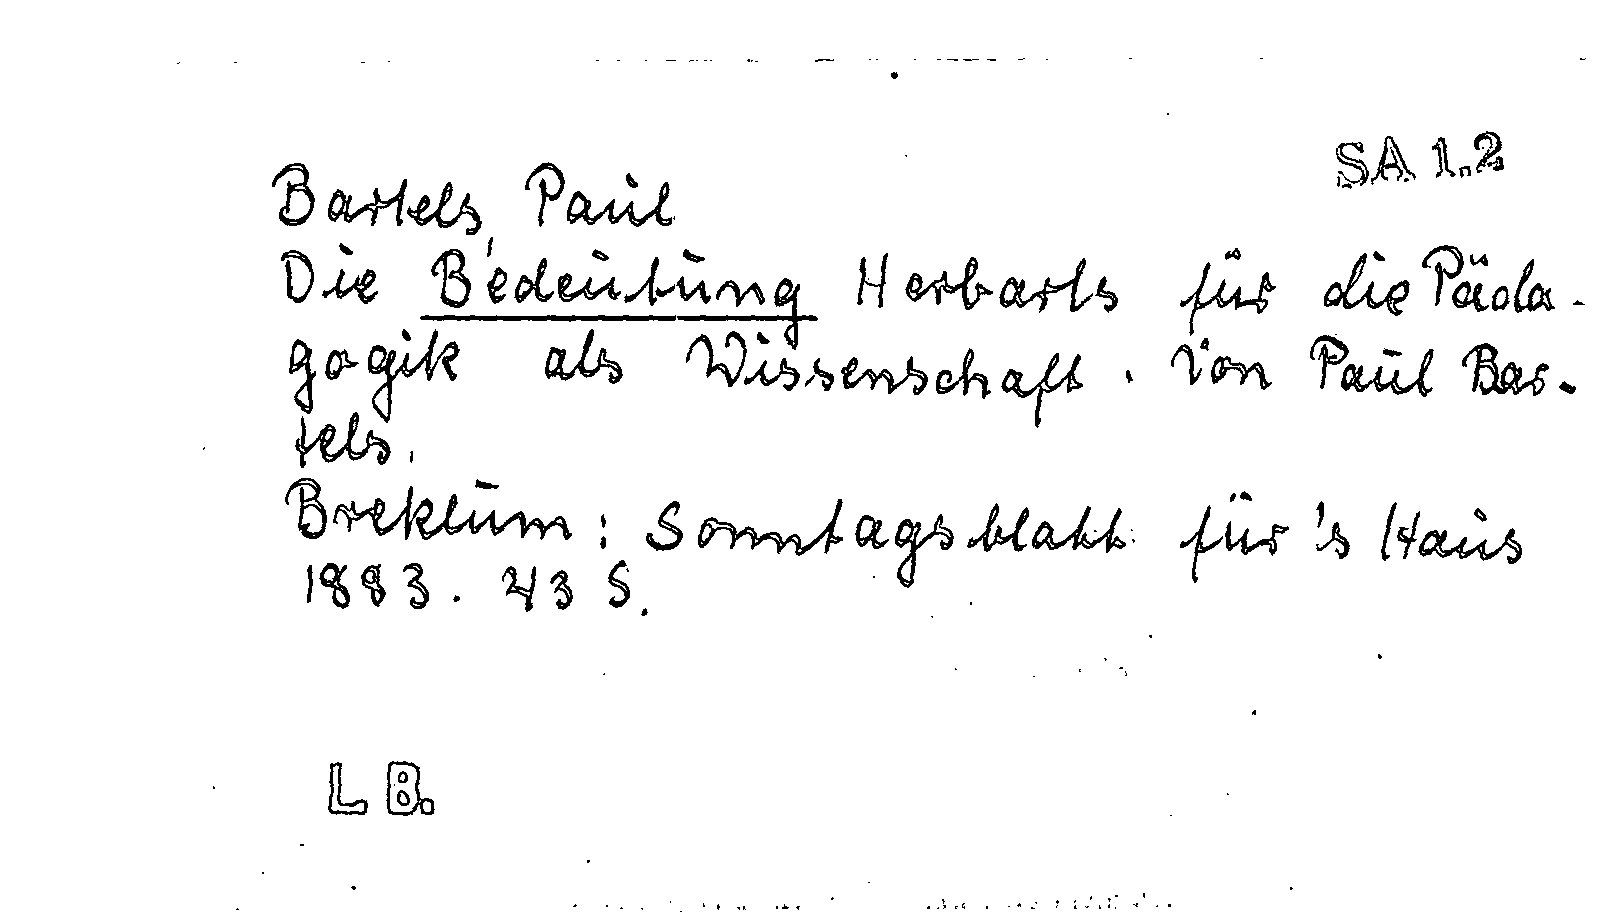 SA 1.2
Bartels, Paul
Die Bedeutung Herbarts für die Päda-
gogik als Wissenschaft. Von Paul Bar-
tels.
Breklum: Sonntagsblatt für's Haus
1883. 43 S.
LB.